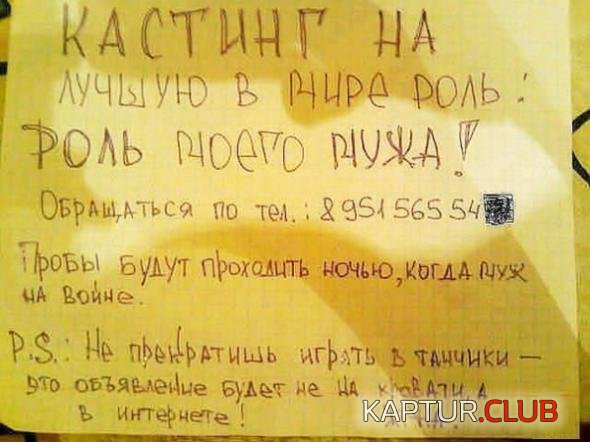 КАСТИНГ НА
ЛУЧШУЮ В МИРЕ РОЛЬ:
РОЛЬ МОЕГО МУЖА!
ОБРАЩАТЬСЯ ПО ТЕЛ.: 8 951 565 54
ПРОБЫ БУДУТ ПРОХОДИТЬ НОЧЬЮ, КОГДА МУЖ
НА ВОЙНЕ.
P.S.: НЕ ПРЕКРАТИШЬ ИГРАТЬ В ТАНЧИКИ —
ЭТО ОБЪЯВЛЕНИЕ БУДЕТ НЕ НА КРОВАТИ, А
В ИНТЕРНЕТЕ!
KAPTUR.CLUB